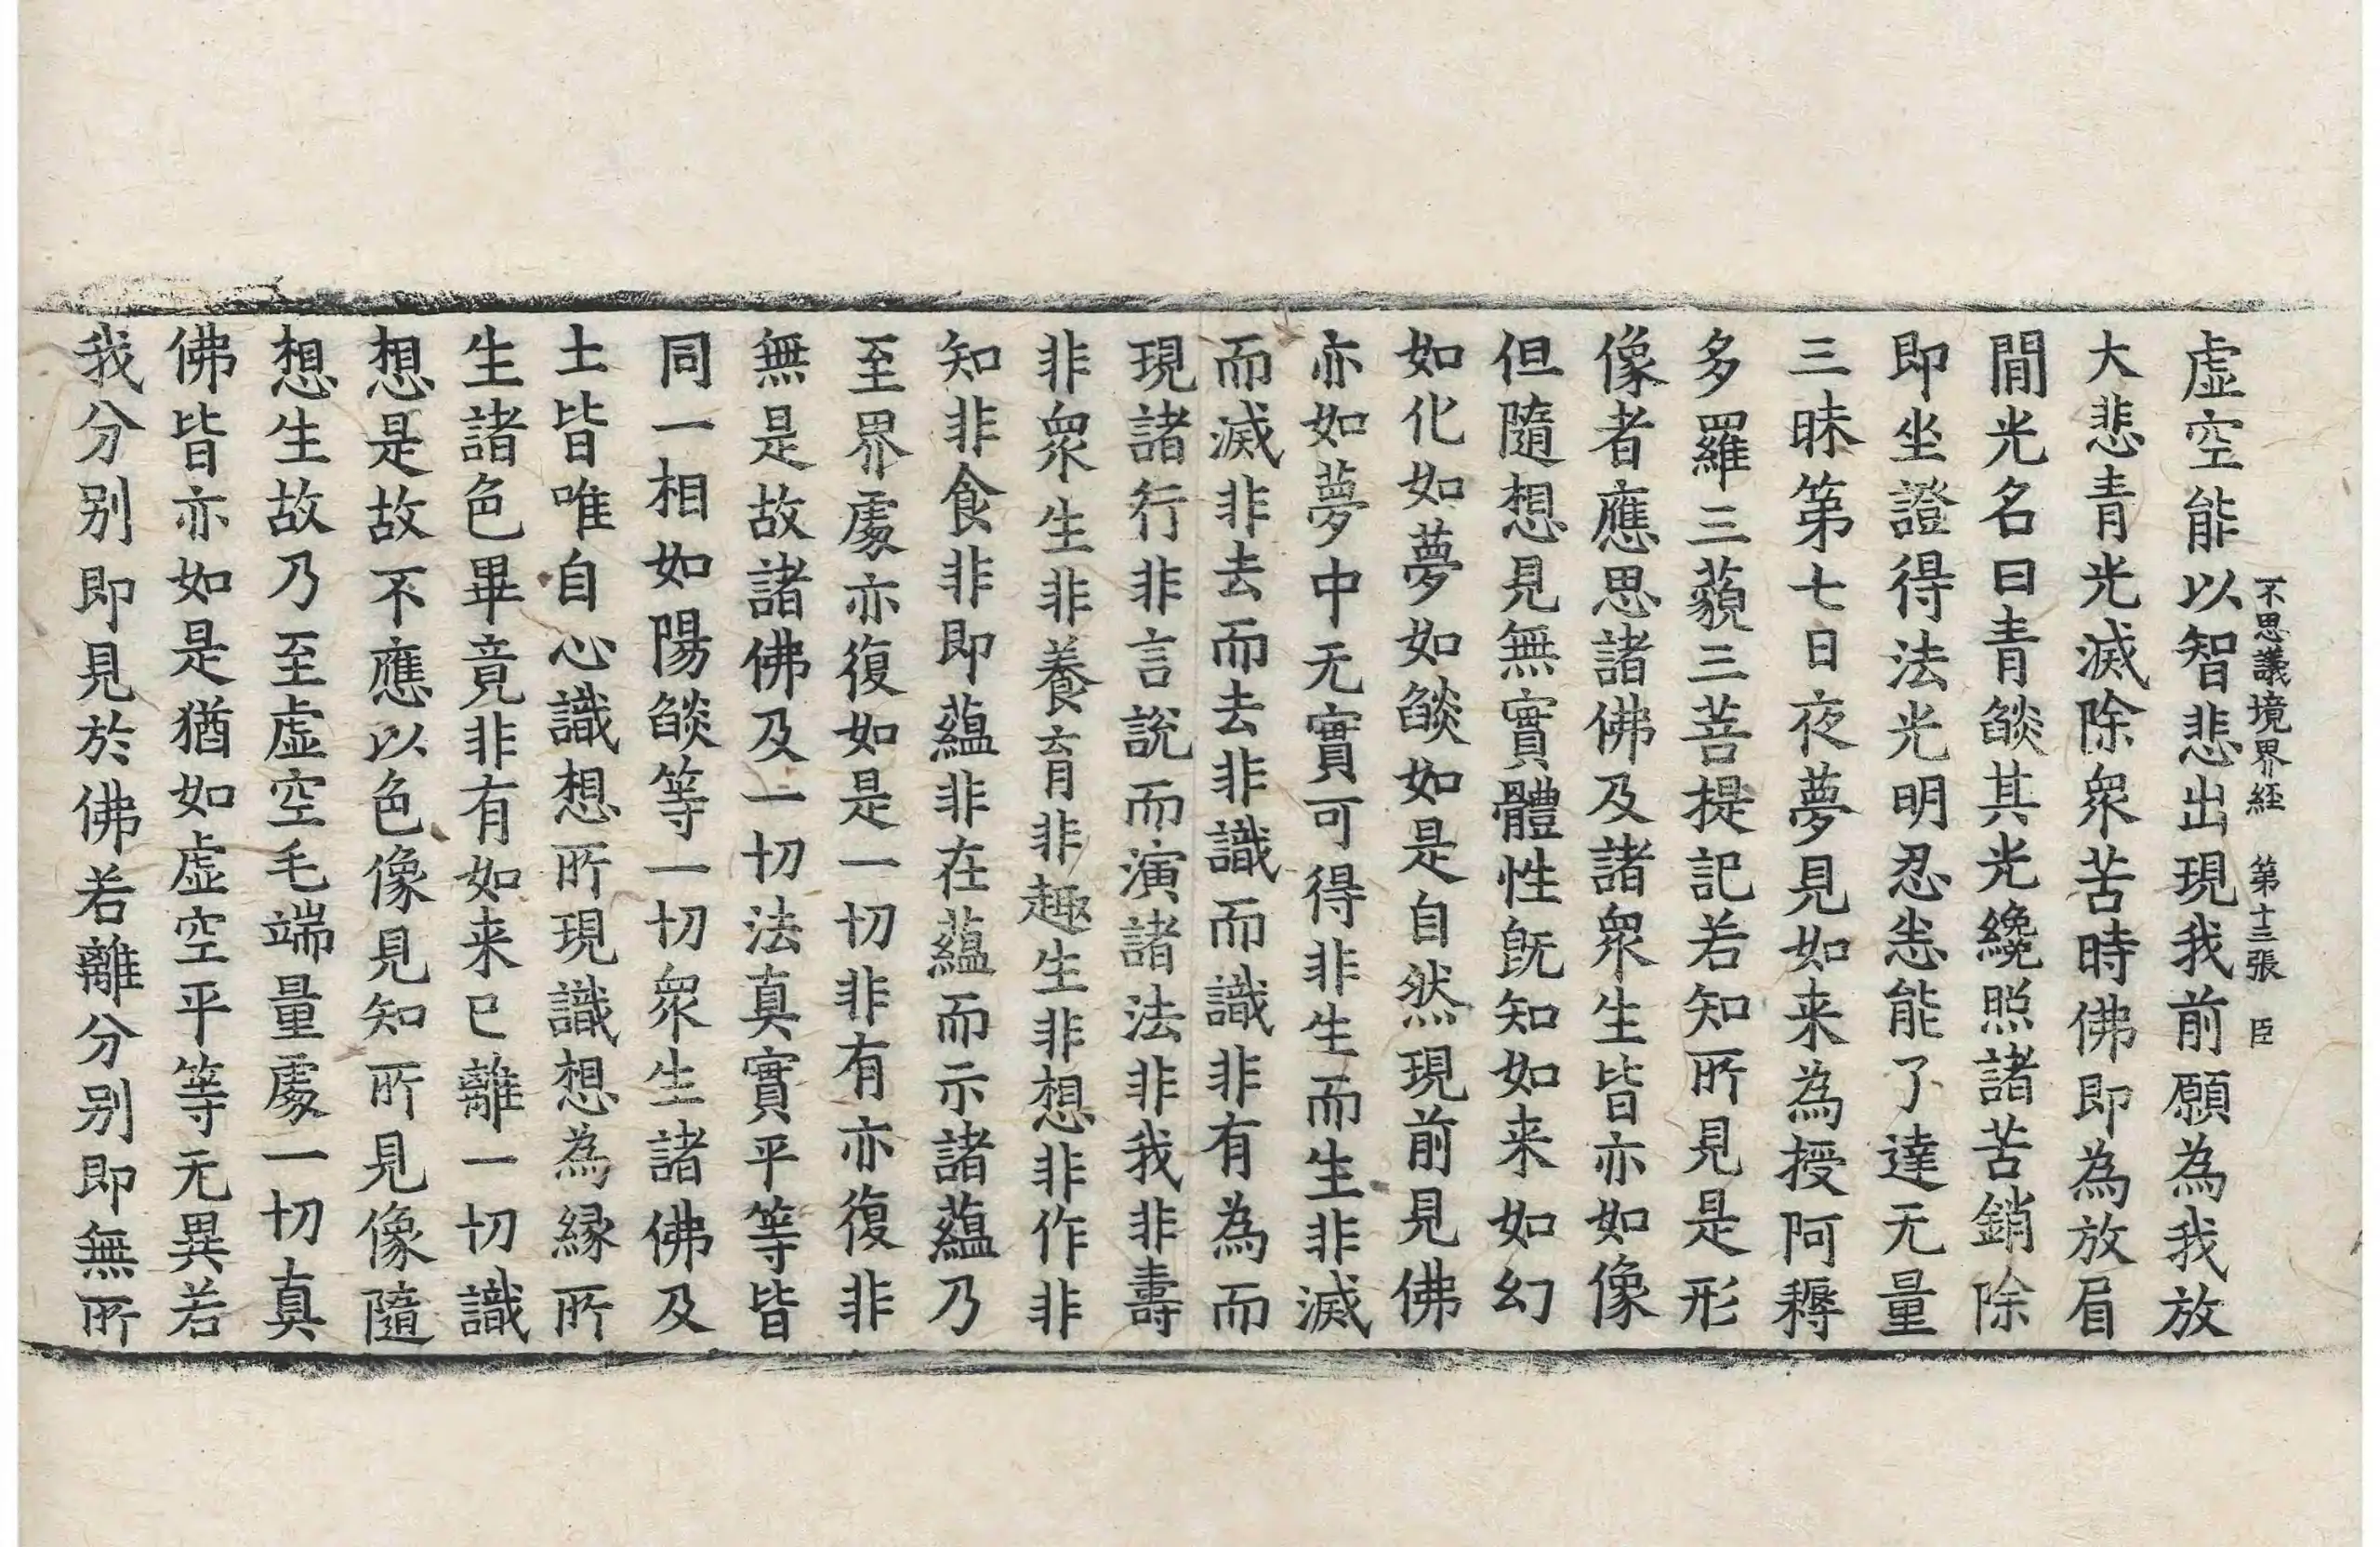 不思議境界経 第十三張 臣
虛空能以智悲出現我前願為我放
大悲青光滅除衆苦時佛即為放眉
閒光名曰青燄其光纔照諸苦銷除
即坐證得法光明忍悉能了達无量
三昧第七日夜夢見如来為授阿耨
多羅三藐三菩提記若知所見是形
像者應思諸佛及諸衆生皆亦如像
但隨想見無實體性既知如来如幻
如化如夢如燄如是自然現前見佛
亦如夢中无實可得非生而生非滅
而滅非去而去非識而識非有為而
現諸行非言說而演諸法非我非壽
非衆生非養育非趣生非想非作非
知非食非即蘊非在蘊而示諸蘊乃
至界處亦復如是一切非有亦復非
無是故諸佛及一切法真實平等皆
同一相如陽燄等一切衆生諸佛及
土皆唯自心識想所現識想為縁所
生諸色畢竟非有如来已離一切識
想是故不應以色像見知所見像隨
想生故乃至虛空毛端量處一切真
佛皆亦如是猶如虛空平等无異若
我分别即見於佛若離分别即無所